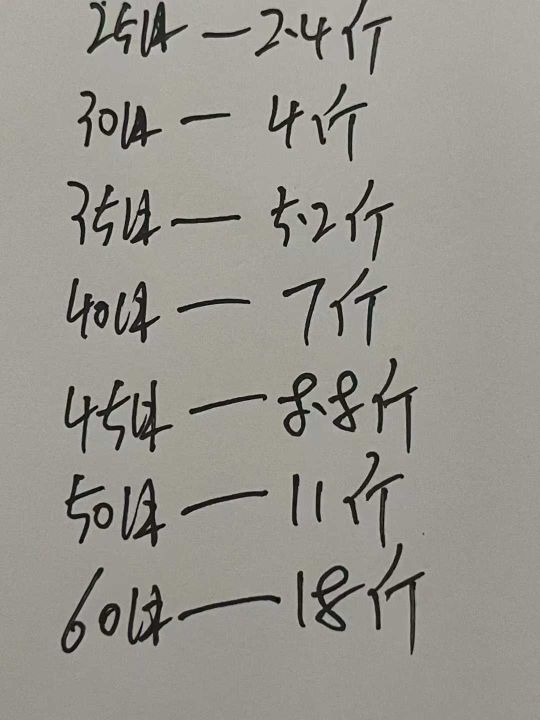 25体 — 2.4斤
30体 — 4斤
35体 — 5.2斤
40体 — 7斤
45体 — 8.8斤
50体 — 11斤
60体 — 18斤